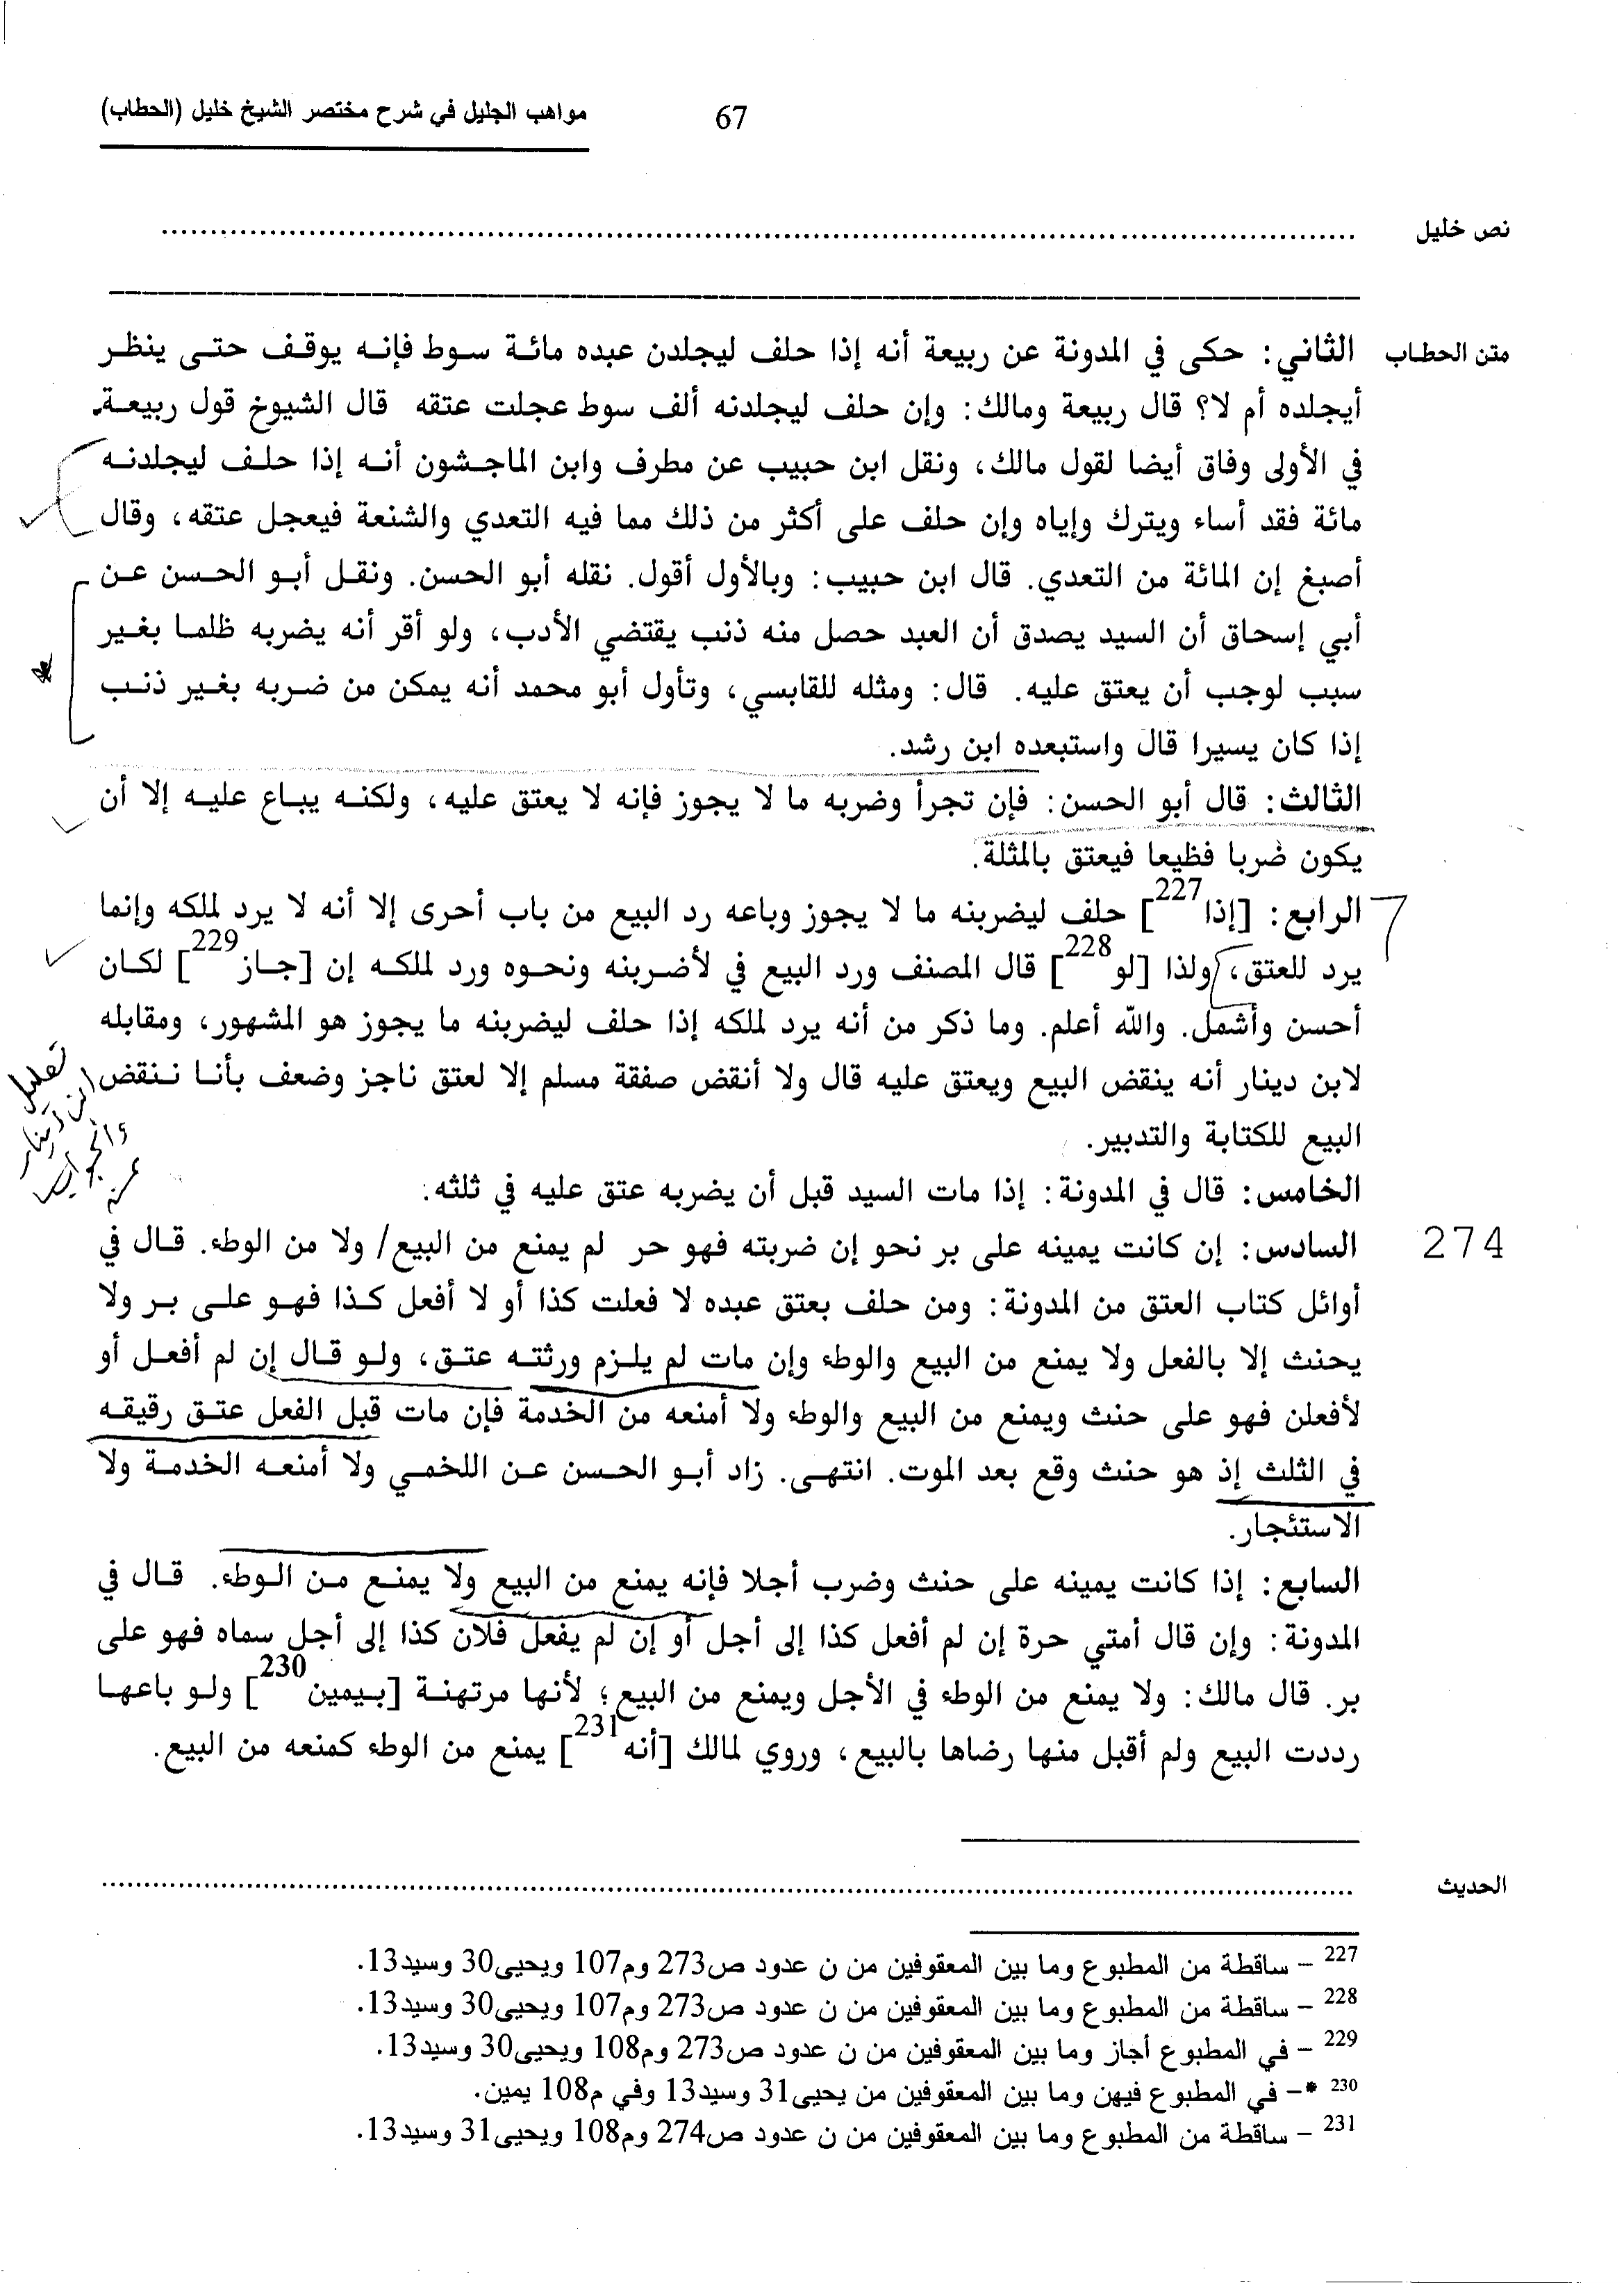 مواهب الجليل في شرح مختصر الشيخ خليل (الحطاب)
67
نص خليل ........................................
متن الحطاب
الثاني: حكى في المدونة عن ربيعة أنه إذا حلف ليجلدن عبده مائة سوط فإنه يوقف حتى ينظر
أيجلده أم لا؟ قال ربيعة ومالك: وإن حلف ليجلدنه ألف سوط عجلت عتقه قال الشيوخ قول ربيعة
في الأولى وفاق أيضا لقول مالك، ونقل ابن حبيب عن مطرف وابن الماجشون أنه إذا حلف ليجلدنه
مائة فقد أساء ويترك وإياه وإن حلف على أكثر من ذلك مما فيه التعدي والشنعة فيعجل عتقه، وقال
أصبغ إن المائة من التعدي. قال ابن حبيب: وبالأول أقول. نقله أبو الحسن. ونقل أبو الحسن عن
أبي إسحاق أن السيد يصدق أن العبد حصل منه ذنب يقتضي الأدب، ولو أقر أنه يضربه ظلما بغير
سبب لوجب أن يعتق عليه. قال: ومثله للقابسي، وتأول أبو محمد أنه يمكن من ضربه بغير ذنب
إذا كان يسيرا قال واستبعده ابن رشد.
الثالث: قال أبو الحسن: فإن تجرأ وضربه ما لا يجوز فإنه لا يعتق عليه، ولكنه يباع عليه إلا أن
يكون ضربا فظيعا فيعتق بالمثلة.
الرابع: [إذا227] حلف ليضربنه ما لا يجوز وباعه رد البيع من باب أحرى إلا أنه لا يرد لملكه وإنما
يرد للعتق، ولذا [لو228] قال المصنف ورد البيع في لأضربنه ونحوه ورد لملكه إن [جاز229] لكان
أحسن وأشمل. والله أعلم. وما ذكر من أنه يرد لملكه إذا حلف ليضربنه ما يجوز هو المشهور، ومقابله
لابن دينار أنه ينقض البيع ويعتق عليه قال ولا أنقض صفقة مسلم إلا لعتق ناجز وضعف بأنا ننقض
البيع للكتابة والتدبير.
تعليل
ابن دينار
والجواب
عنه
الخامس: قال في المدونة: إذا مات السيد قبل أن يضربه عتق عليه في ثلثه.
274
السادس: إن كانت يمينه على بر نحو إن ضربته فهو حر لم يمنع من البيع/ ولا من الوطء. قال في
أوائل كتاب العتق من المدونة: ومن حلف بعتق عبده لا فعلت كذا أو لا أفعل كذا فهو على بر ولا
يحنث إلا بالفعل ولا يمنع من البيع والوطء وإن مات لم يلزم ورثته عتق، ولو قال إن لم أفعل أو
لأفعلن فهو على حنث ويمنع من البيع والوطء ولا أمنعه من الخدمة فإن مات قبل الفعل عتق رقيقه
في الثلث إذ هو حنث وقع بعد الموت. انتهى. زاد أبو الحسن عن اللخمي ولا أمنعه الخدمة ولا
الاستئجار.
السابع: إذا كانت يمينه على حنث وضرب أجلا فإنه يمنع من البيع ولا يمنع من الوطء. قال في
المدونة: وإن قال أمتي حرة إن لم أفعل كذا إلى أجل أو إن لم يفعل فلان كذا إلى أجل سماه فهو على
بر. قال مالك: ولا يمنع من الوطء في الأجل ويمنع من البيع؛ لأنها مرتهنة [بيمين230] ولو باعها
رددت البيع ولم أقبل منها رضاها بالبيع، وروي لمالك [أنه231] يمنع من الوطء كمنعه من البيع.
الحديث ........................................
227 – ساقطة من المطبوع وما بين المعقوفين من ن عدود ص273 وم107 ويحيى30 وسيد13.
228 – ساقطة من المطبوع وما بين المعقوفين من ن عدود ص273 وم107 ويحيى30 وسيد13.
229 – في المطبوع أجاز وما بين المعقوفين من ن عدود ص273 وم108 ويحيى30 وسيد13.
230 *– في المطبوع فيهن وما بين المعقوفين من يحيى31 وسيد13 وفي م108 يمين.
231 – ساقطة من المطبوع وما بين المعقوفين من ن عدود ص274 وم108 ويحيى31 وسيد13.